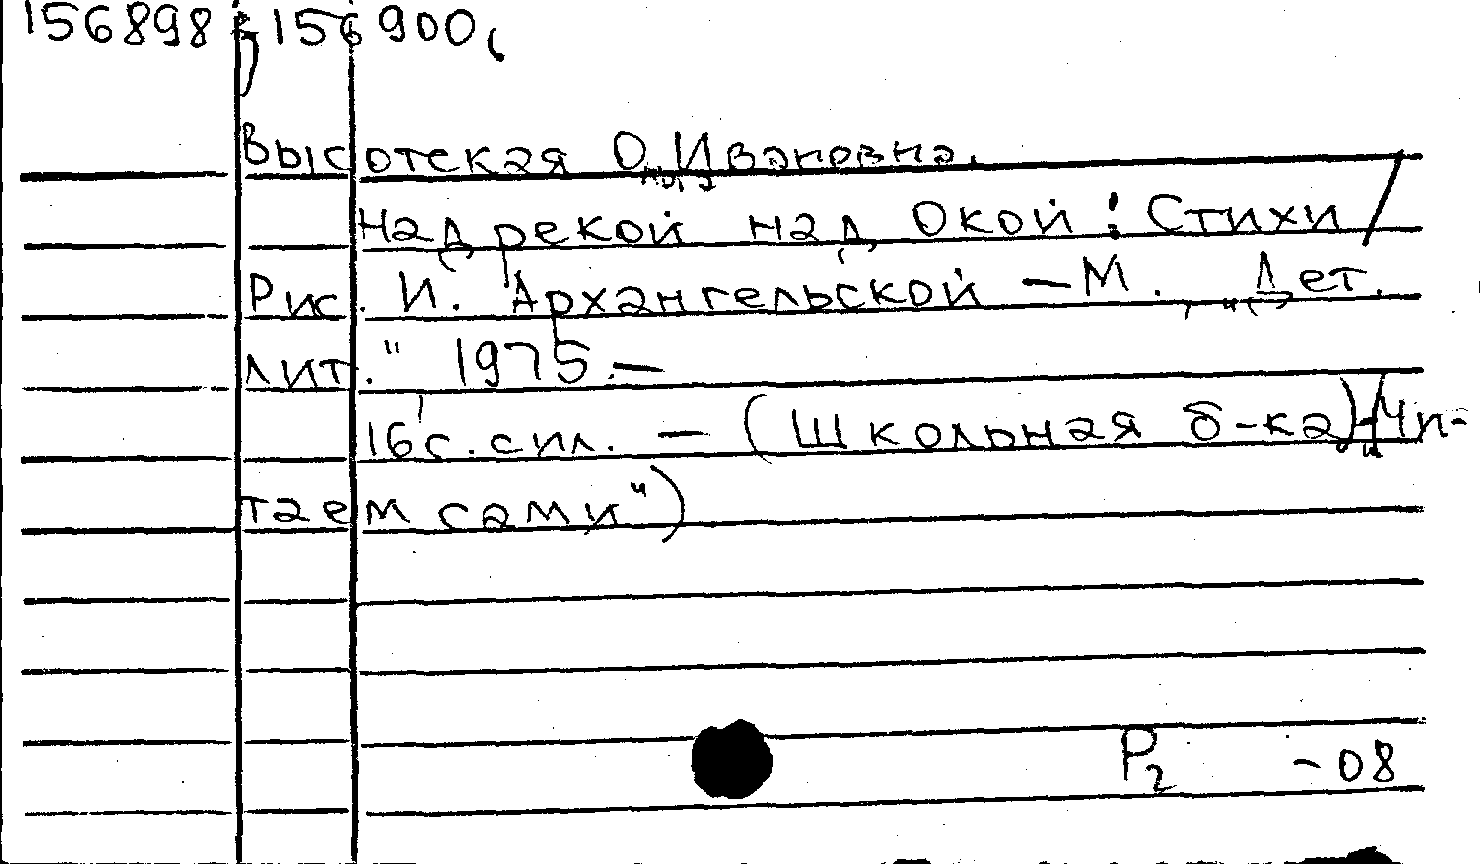 156898; 156900,
Высотская О. Ивановна.
Над рекой над Окой: Стихи /
Рис. И. Архангельской — М., „Дет.
лит." 1975.—
16 с. с ил. — (Школьная б-ка) „Чи-
таем сами")
Р2 -08